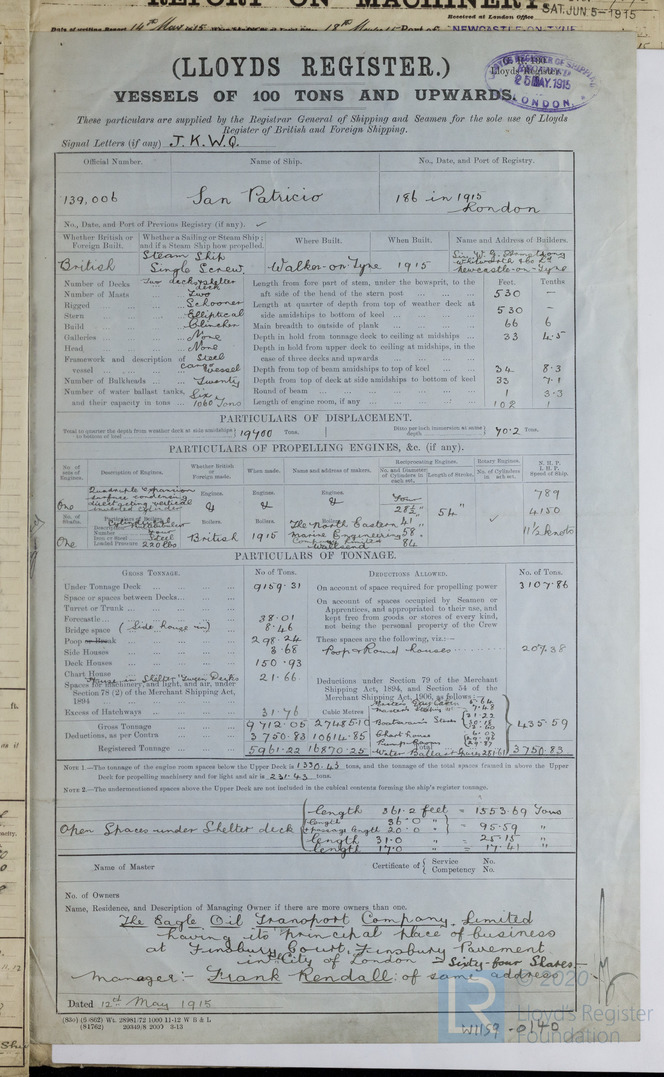 REPORT ON MACHINERY
SAT. JUN 5-1915
Received at London Office
Date of writing Report 14th May 1915
NEWCASTLE-ON-TYNE
(LLOYDS REGISTER.)
LLOYD'S REGISTER OF SHIPPING
25 MAY. 1915
LONDON.
VESSELS OF 100 TONS AND UPWARDS.
These particulars are supplied by the Registrar General of Shipping and Seamen for the sole use of Lloyds
Register of British and Foreign Shipping.
Signal Letters (if any) J.K.W.Q.
Official Number. Name of Ship. No., Date, and Port of Registry.
139,006 San Patricio 186 in 1915
London
No., Date, and Port of Previous Registry (if any).
Whether British or Foreign Built. Whether a Sailing or Steam Ship; and if a Steam Ship how propelled. Where Built. When Built. Name and Address of Builders.
British Steam Ship Single Screw Walker-on-Tyne 1915 Sir W. G. Armstrong Whitworth & Co Ld Newcastle-on-Tyne
Number of Decks Two decks & shelter deck
Number of Masts Two
Rigged Schooner
Stern Elliptical
Build Clincher
Galleries None
Head None
Framework and description of vessel Steel
Number of Bulkheads Twenty
Number of water ballast tanks, Six
and their capacity in tons 1060 Tons
Feet. Tenths
Length from fore part of stem, under the bowsprit, to the aft side of the head of the stern post 530 —
Length at quarter of depth from top of weather deck at side amidships to bottom of keel 530 —
Main breadth to outside of plank 66 6
Depth in hold from tonnage deck to ceiling at midships 33 4.5
Depth in hold from upper deck to ceiling at midships, in the case of three decks and upwards
Depth from top of beam amidships to top of keel 34 8.3
Depth from top of deck at side amidships to bottom of keel 33 7.1
Round of beam 1 3.3
Length of engine room, if any 102 1
PARTICULARS OF DISPLACEMENT.
Total to quarter the depth from weather deck at side amidships to bottom of keel 19400 Tons.
Ditto per inch immersion at same depth 70.2 Tons.
PARTICULARS OF PROPELLING ENGINES, &c. (if any).
No. of sets of Engines. Description of Engines. Whether British or Foreign made. When made. Name and address of makers. Reciprocating Engines. No. and Diameter of Cylinders in each set. Length of Stroke. Rotary Engines. No. of Cylinders in each set. N.H.P. I.H.P. Speed of Ship.
One Quadruple expansion surface condensing direct acting vertical inverted cylinder
Engines. Engines. Engines.
Four
28½" 54" 789
No. of Shafts. Boilers. Boilers. 41" 4150
Number Four 58" 11½ knots
Iron or Steel Steel
One Loaded Pressure 220 lbs British 1915 The North Eastern Marine Engineering Company Limited Wallsend 84
PARTICULARS OF TONNAGE.
Gross Tonnage. No. of Tons. Deductions Allowed. No. of Tons.
Under Tonnage Deck 9159.31
Space or spaces between Decks
Turret or Trunk
Forecastle 38.01
Bridge space (Side house in) 8.46
Poop or Break 298.24
Side Houses 3.68
Deck Houses 150.93
Chart House 21.66
Spaces for machinery, and light, and air, under Section 78 (2) of the Merchant Shipping Act, 1894
Excess of Hatchways 31.76 Cubic Metres
Gross Tonnage 9712.05 27485.10
Deductions, as per Contra 3750.83 10614.85
Registered Tonnage 5961.22 16870.25
On account of space required for propelling power 3107.86
On account of spaces occupied by Seamen or Apprentices, and appropriated to their use, and kept free from goods or stores of every kind, not being the personal property of the Crew
These spaces are the following, viz.:—
Poop & Round houses 207.38
Deductions under Section 79 of the Merchant Shipping Act, 1894, and Section 54 of the Merchant Shipping Act, 1906, as follows:—
Boatswain's Stores
Chart house
Pump Rooms
Water Ballast Spaces
435.59
Total 3750.83
Note 1.—The tonnage of the engine room spaces below the Upper Deck is 1330.43 tons, and the tonnage of the total spaces framed in above the Upper Deck for propelling machinery and for light and air is 231.43 tons.
Note 2.—The undermentioned spaces above the Upper Deck are not included in the cubical contents forming the ship's register tonnage.
Open Spaces under Shelter deck
length 361.2 feet = 1553.69 Tons
length 36.0 "
passage length 20.0 " = 95.59 "
length 31.0 " = 25.15 "
length 17.0 " = 17.41 "
Name of Master Certificate of { Service No. Competency No.
No. of Owners
Name, Residence, and Description of Managing Owner if there are more owners than one.
The Eagle Oil Transport Company, Limited
having its principal place of business
at Finsbury Court, Finsbury Pavement
in the City of London = Sixty-four Shares.—
Manager:- Frank Kendall: of same address
Dated 12th May 1915.
© 2020
Lloyd's Register
Foundation
W1159-0140